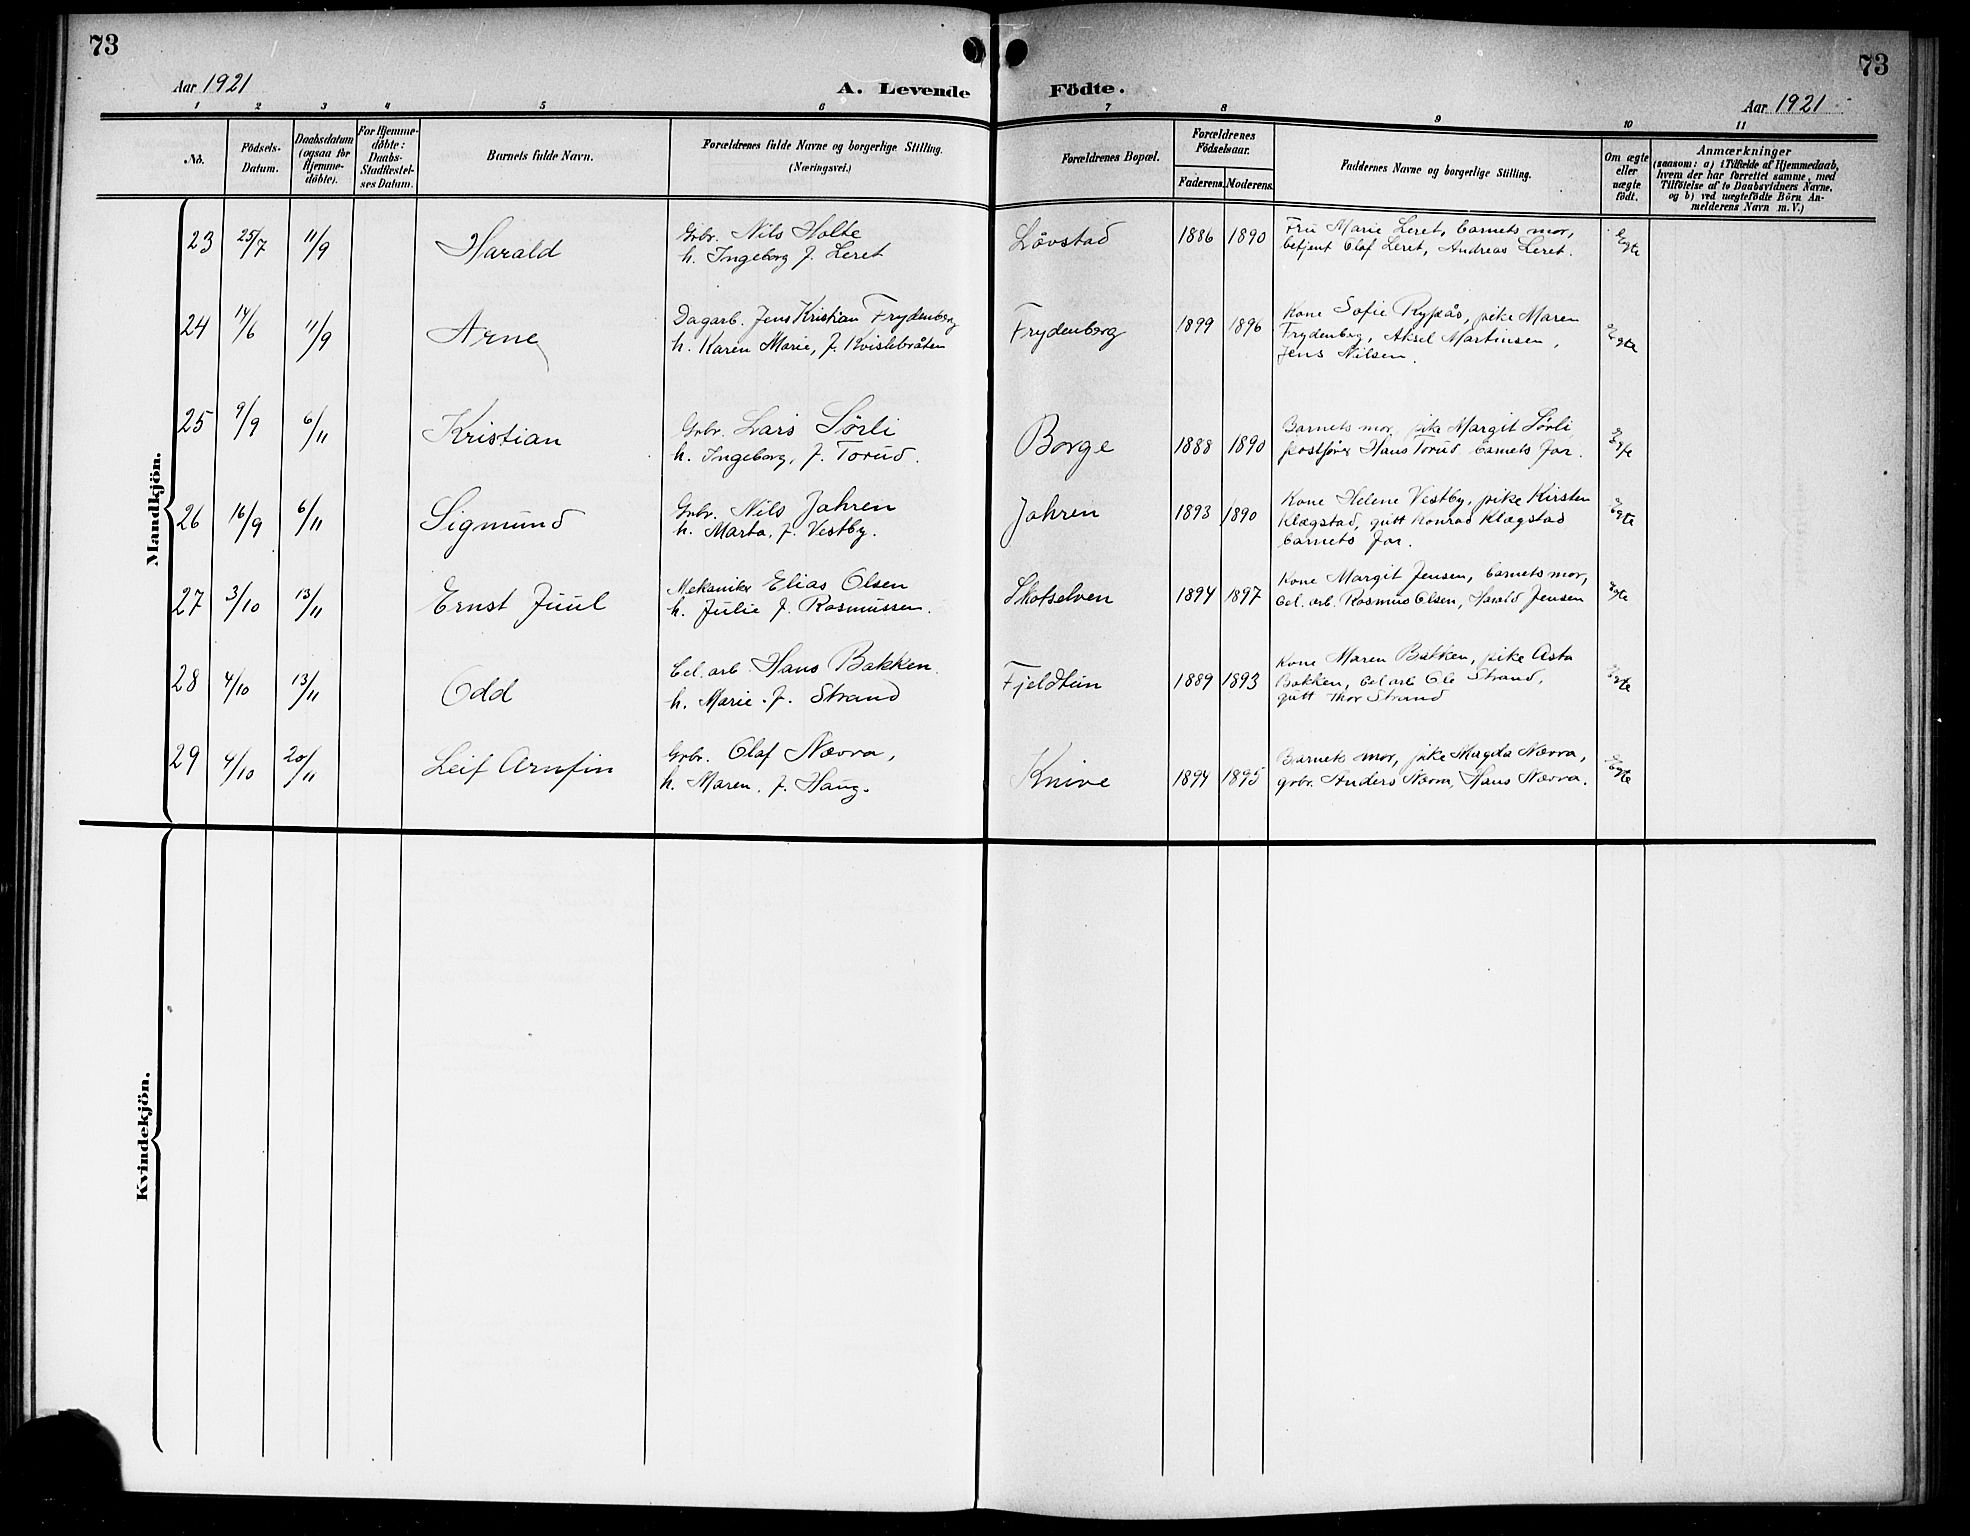 73
Aar 1921
A. Levende
1 2 3 4 5 6
No.
Födsels-
Datum.
Daabsdatum
(ogsaa for
Hjemme-
döbte).
For Hjemme-
döbte:
Daabs-
Stadfæstel-
ses Datum.
Barnets fulde Navn.
Forældrenes fulde Navne og borgerlige Stilling.
(Næringsvei.)
Mandkjön.
23 25/7 11/9 Harald
Grbr. Nils Holte
h. Ingeborg f. Leret
24 14/6 11/9 Arne
Dagarb. Jens Kristian Frydenberg
h. Karen Marie, f. Kvislebråten
25 9/9 6/11 Kristian
Grbr. Lars Sörli
h. Ingeborg, f. Torud.
26 16/9 6/11 Sigmund
Grbr. Nils Jahren
h. Marta, f. Vestby.
27 3/10 13/11 Ernst Juul
Mekaniker Elias Olsen
h. Julie f. Rasmussen.
28 4/10 13/11 Odd
Cel. arb. Hans Bakken
h. Marie. f. Strand
29 4/10 20/11 Leif Arnfin
Grbr. Olaf Nævra,
h. Maren. f. Haug.
Kvindekjön.
73
Födte.
Aar 1921
7 8 9 10 11
Forældrenes Bopæl.
Forældrenes
Födselsaar.
Faderens. Moderens.
Faddernes Navne og borgerlige Stilling.
Om ægte
eller
uægte
födt.
Anmærkninger
(saasom: a) i Tilfælde af Hjemmedaab,
hvem der har forrettet samme, med
Tilföielse af to Daabsvidners Navne,
og b) ved uægtefödte Börn An-
melderens Navn m. V.)
Lövstad 1886 1890
Fru Marie Leret, barnets mor,
betjent Olaf Leret, Andreas Leret.
Egte
Frydenberg 1899 1896
Kone Sofie Rypås, pike Maren
Frydenberg, Aksel Martinsen,
Jens Nilsen.
Egte
Borge 1888 1890
Barnets mor, pike Margit Sörli
postförer Hans Torud barnets far.
Egte
Jahren 1893 1890
Kone Helene Vestby, pike Kirsten
Klægstad, gutt Konrad Klægstad
barnets far.
Egte
Skotselven 1894 1897
Kone Margit Jensen, barnets mor,
Cel. arb. Rasmus Olsen, Harald Jensen
Egte
Fjeldtun 1889 1893
Kone Maren Bakken, pike Asta
Bakken, Cel arb Ole Strand,
gutt Thor Strand
Egte
Knive 1894 1895
Barnets mor, pike Magda Nævra,
grbr. Anders Nævra, Hans Nævra.
Egte